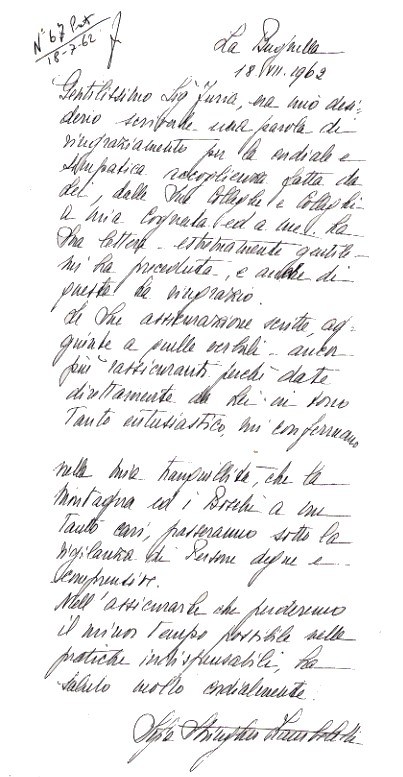 N° 67 Prot
18-7-62
La Bughella
18.VII.1962
Gentilissimo Sig. Juria, era mio desi-
derio scriverle una parola di
ringraziamento per la cordiale e
simpatica accoglienza fatta da
Lei, dalle Sue Colleghe e Colleghi
a mia Cognata ed a me. La
Sua lettera - estremamente gentile -
mi ha preceduta, e anche di
questa La ringrazio.
Le Sue assicurazione scritte, ag-
giunte a quelle verbali - ancor
più rassicuranti perchè date
direttamente da Lei in tono
tanto entusiastico, mi confermano
nella mia tranquillità, che la
Montagna ed i Boschi a me
tanto cari, passeranno sotto la
vigilanza di Persone degne e
comprensive.
Nell'assicurarLe che perderemo
il minor tempo possibile nelle
pratiche indispensabili, La
saluto molto cordialmente.